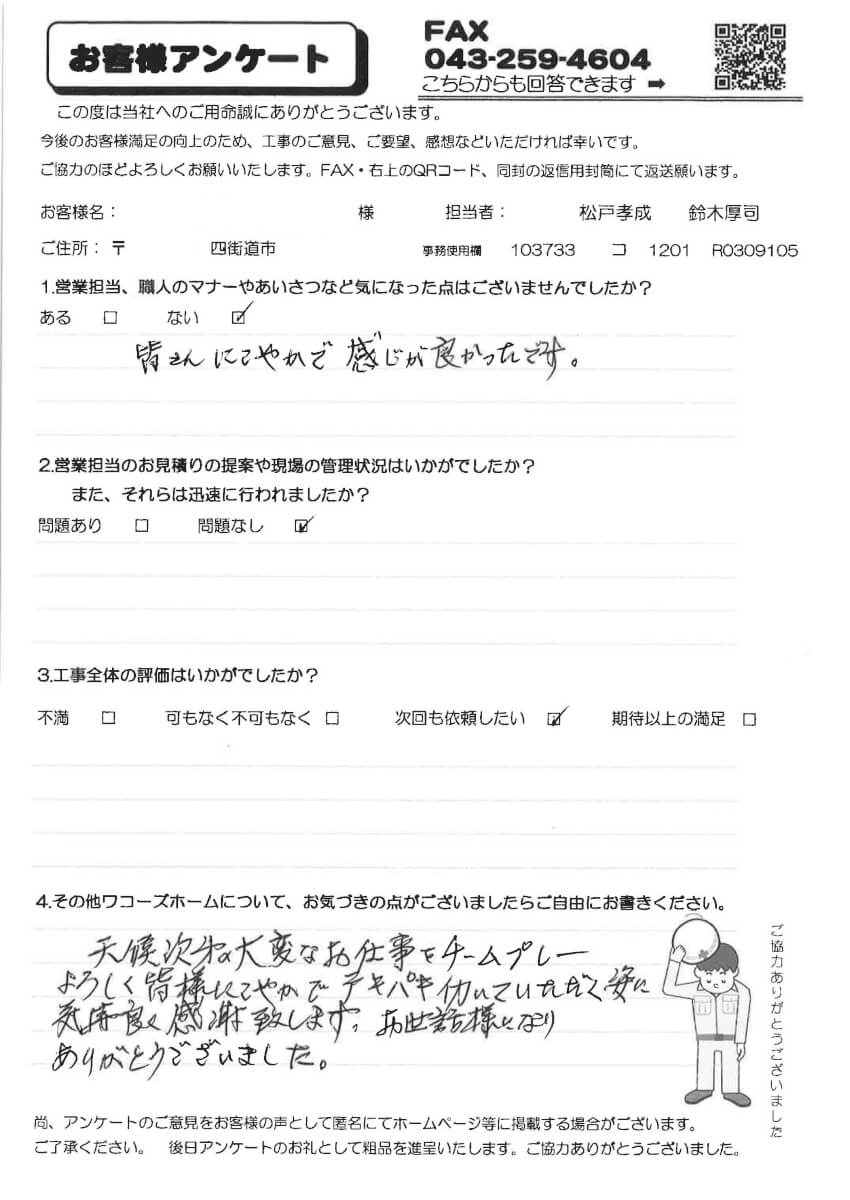 お客様アンケート
FAX
043-259-4604
こちらからも回答できます ➡
この度は当社へのご用命誠にありがとうございます。
今後のお客様満足の向上のため、工事のご意見、ご要望、感想などいただければ幸いです。
ご協力のほどよろしくお願いいたします。FAX・右上のQRコード、同封の返信用封筒にて返送願います。
お客様名： 様 担当者： 松戸孝成 鈴木厚司
ご住所：〒 四街道市 事務使用欄 103733 コ 1201 R0309105
1.営業担当、職人のマナーやあいさつなど気になった点はございませんでしたか？
ある □ ない ☑
皆さんにこやかで感じが良かったです。
2.営業担当のお見積りの提案や現場の管理状況はいかがでしたか？
また、それらは迅速に行われましたか？
問題あり □ 問題なし ☑
3.工事全体の評価はいかがでしたか？
不満 □ 可もなく不可もなく □ 次回も依頼したい ☑ 期待以上の満足 □
4.その他ワコーズホームについて、お気づきの点がございましたらご自由にお書きください。
天候次第の大変なお仕事をチームプレー
よろしく皆様にこやかでテキパキ働いていただく姿に
気持良く感謝致します。お世話様になり
ありがとうございました。
ご協力ありがとうございました
尚、アンケートのご意見をお客様の声として匿名にてホームページ等に掲載する場合がございます。
ご了承ください。 後日アンケートのお礼として粗品を進呈いたします。ご協力ありがとうございました。